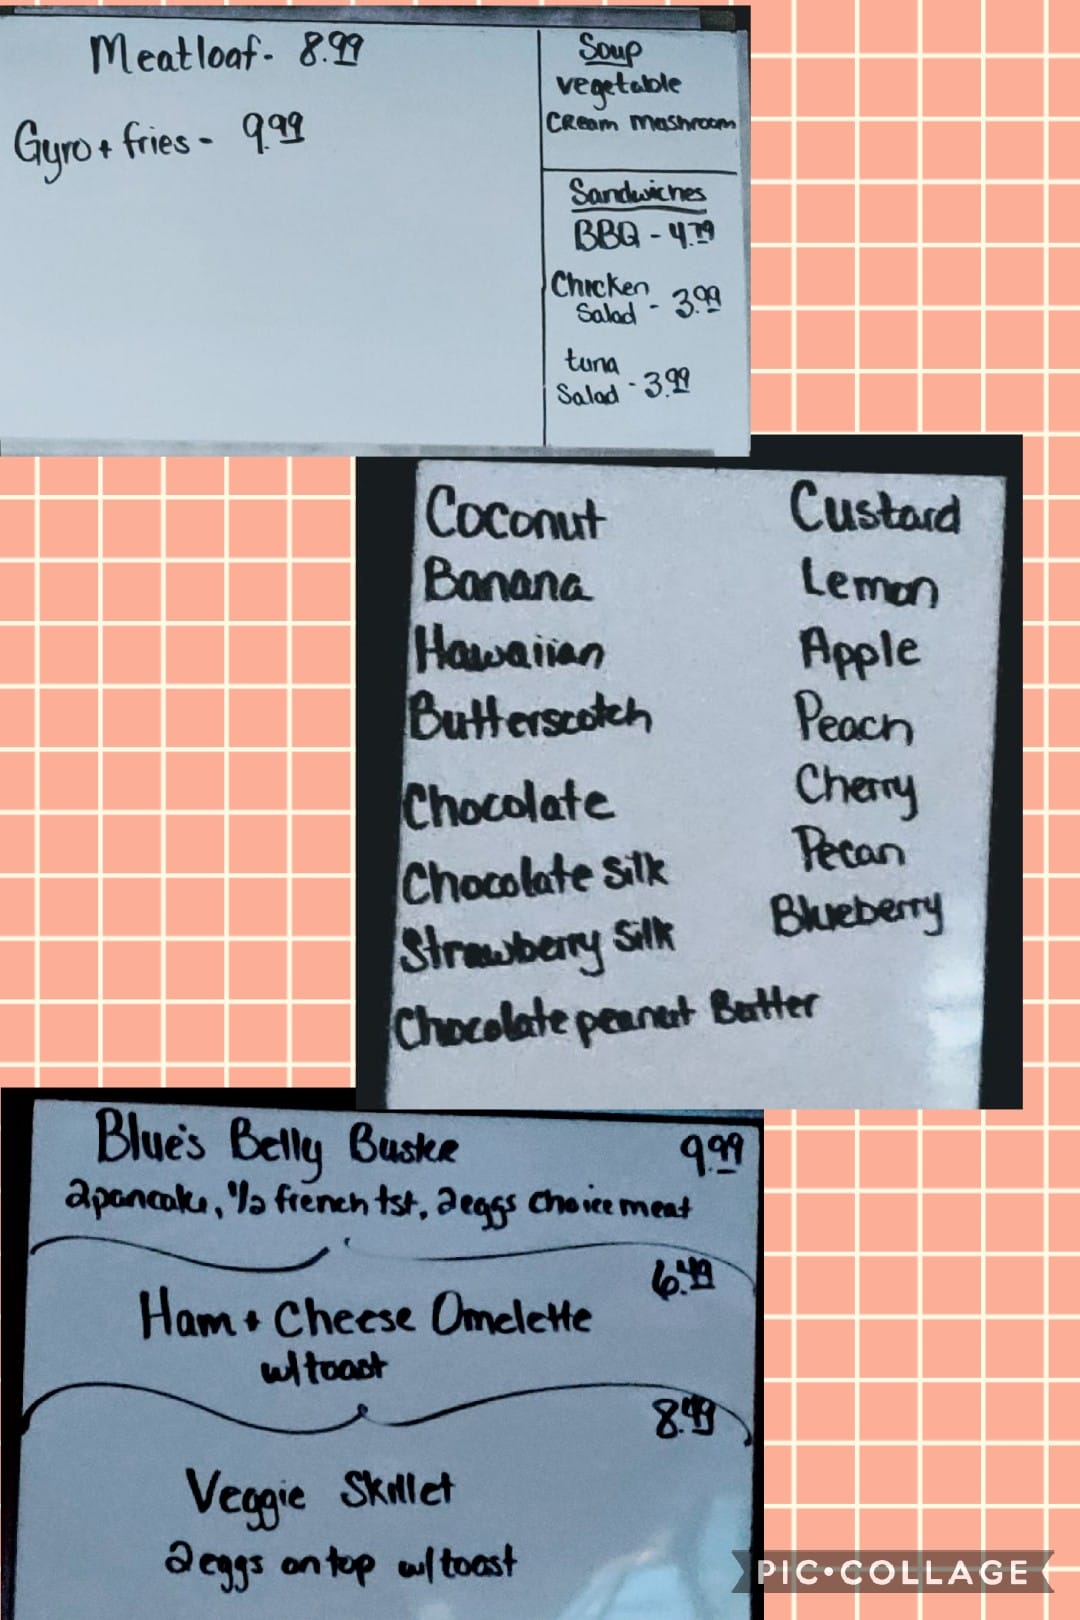 Meatloaf- 8.99
Gyro + fries - 9.99
Soup
vegetable
CReam mushroom
Sandwiches
BBQ - 4.79
Chicken
Salad - 3.99
tuna
Salad - 3.99
Coconut
Banana
Hawaiian
Butterscotch
Chocolate
Chocolate Silk
Strawberry Silk
Chocolate peanut Butter
Custard
Lemon
Apple
Peach
Cherry
Pecan
Blueberry
Blue's Belly Buster 9.99
2 pancake, 1/2 french tst, 2 eggs choice meat
6.49
Ham + Cheese Omelette
w/ toast
8.49
Veggie Skillet
2 eggs on top w/ toast
PIC•COLLAGE